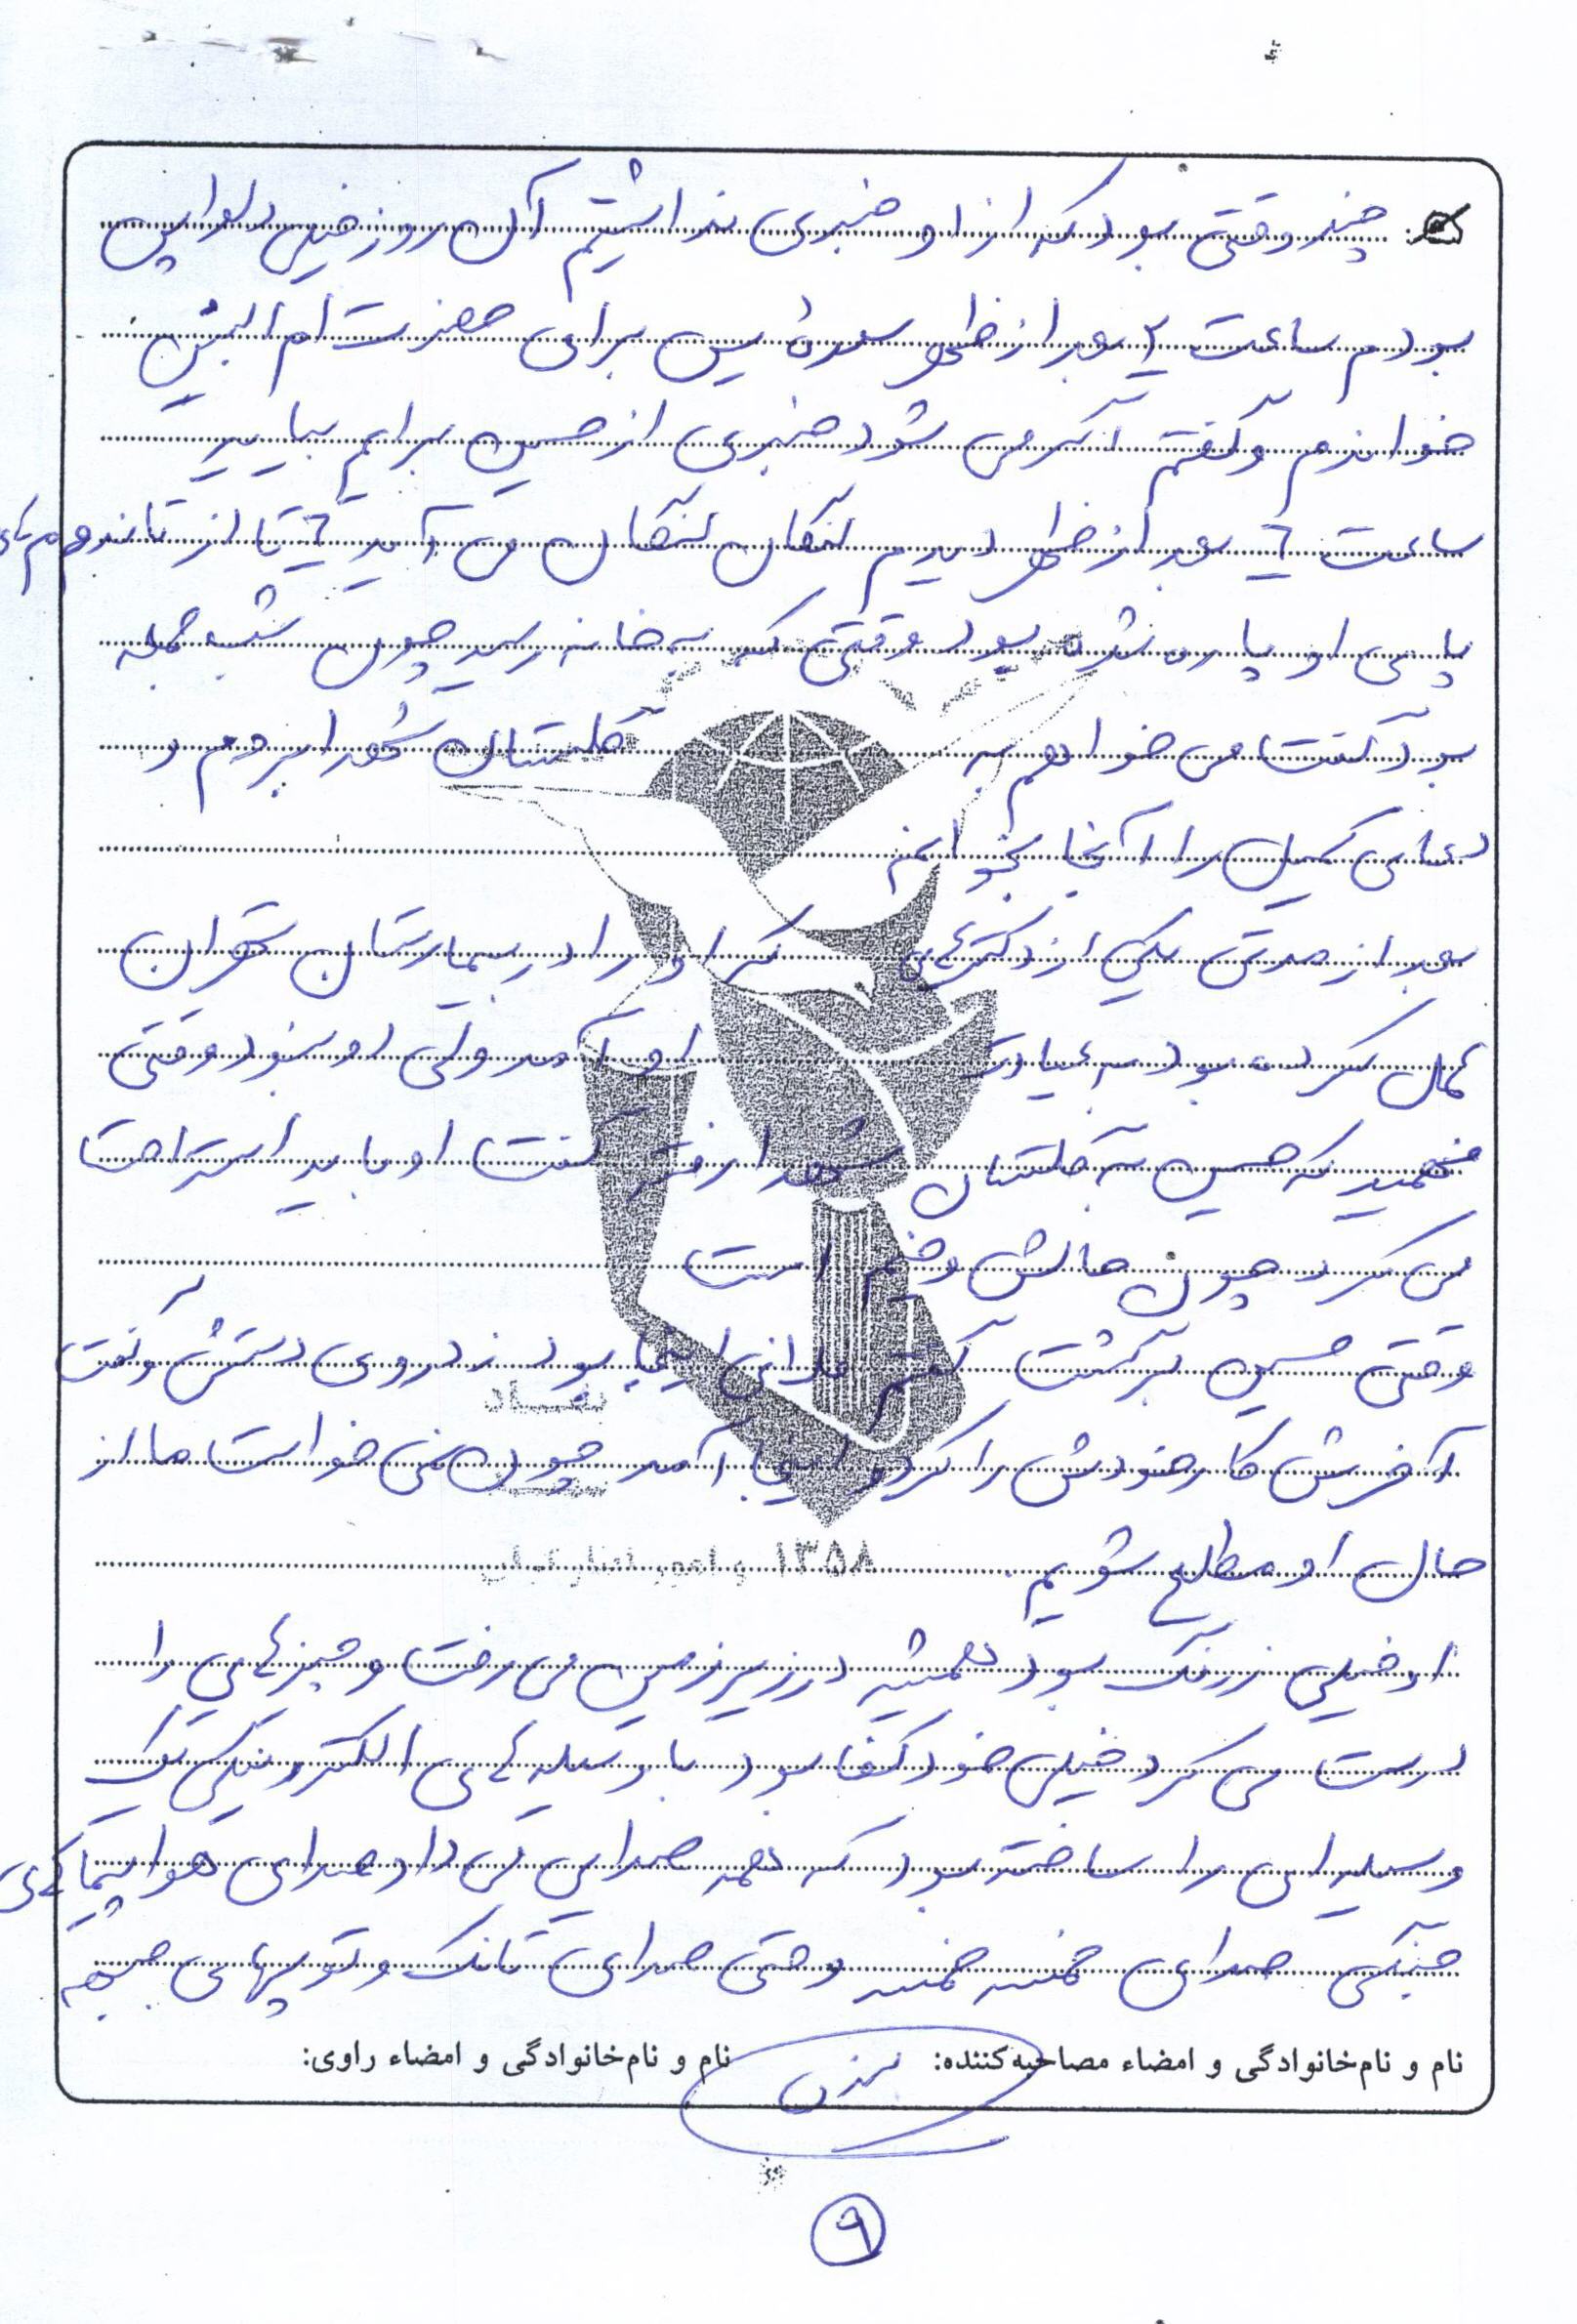 چند وقتی بود که از او خبری نداشتیم آن روز خیلی دلواپس
بودم ساعت ۲ بعد از ظهر سورهٔ یس برای حضرت ام البنین
خواندم و گفتم اگر می شود خبری از حسین برایم بیایید
ساعت ٦ بعد از ظهر دیدم لنگان لنگان می آید ٦ تا از تاندوم های
پای او پاره شده بود وقتی که به خانه رسید چون شب جمعه
بود گفت می خواهم به گلستان شهدا بروم و
دعای کمیل را آنجا بخوانم
بعد از مدتی یکی از دکترهایی که او را در بیمارستان تهران
عمل کرده بود به عیادت او آمد ولی او نبود وقتی
فهمید که حسین به گلستان شهدا رفته گفت او باید استراحت
می کرد چون حالش وخیم است
وقتی حسین برگشت گفتم فلانی اینجا بود زد روی دستش و گفت
آخرش کار خودش را کرد و اینجا آمد چون نمی خواست ما از
حال او مطلع شویم.
او خیلی زرنگ بود همیشه در زیرزمین می رفت و چیزهایی را
درست می کرد خیلی خودکفا بود با وسیله های الکترونیکی یک
وسیله ای را ساخته بود که همه صدایی می داد صدای هواپیماهای
جنگی صدای خمسه خمسه و حتی صدای تانک و توپهای جبهه
نام و نام‌خانوادگی و امضاء مصاحبه‌کننده: نام و نام‌خانوادگی و امضاء راوی:
۹